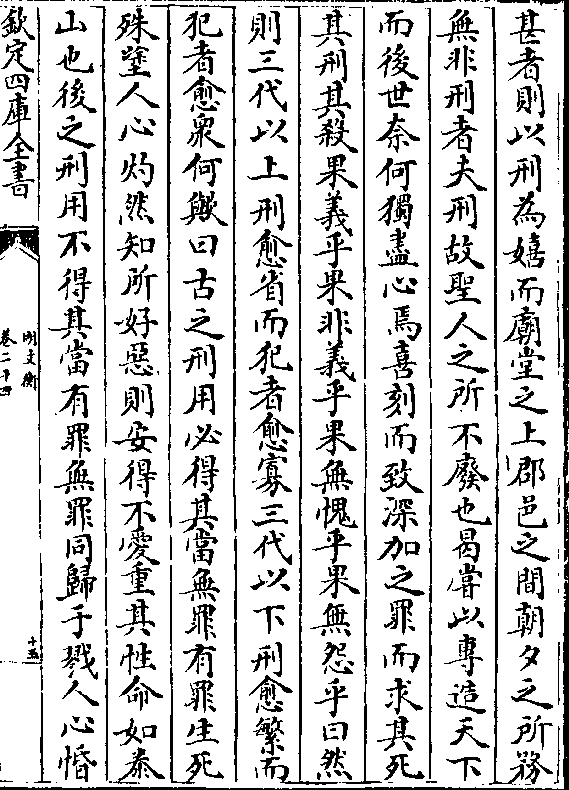 甚者則以刑為嬉而廟堂之上郡邑之間朝夕之所務
無非刑者夫刑故聖人之所不廢也曷嘗以專造天下
而後世奈何獨盡心焉喜刻而致深加之罪而求其死
其刑其殺果義乎果非義乎果無愧乎果無怨乎曰然
則三代以上刑愈省而犯者愈寡三代以下刑愈繁而
犯者愈衆何歟曰古之刑用必得其當無罪有罪生死
殊塗人心灼然知所好惡則安得不愛重其性命如泰
山也後之刑用不得其當有罪無罪同歸于戮人心惛
欽定四庫全書
明文衡
卷二十四
十五